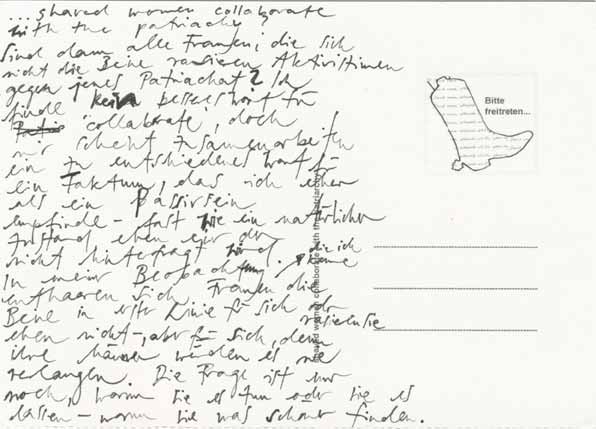 ... shaved women collaborate
with the patriachy
Sind dann alle Frauen, die sich
nicht die Beine rasieren Aktivistinnen
gegen jenes Patriachat? Ich
finde kein besseres Wort für
collaborate, doch
mir scheint zusammenarbeiten
ein zu entschiedenes Wort für
ein Faktum, das ich eher
als ein Passivsein
empfinde - fast wie ein natürlicher
Zustand eben einer der
nicht hinterfragt wird.
In meiner Beobachtung, die ich kenne
enthaaren sich Frauen die
Beine in erster Linie für sich oder
eben nicht -, aber für sich, denn
ihre Männer würden es nie
verlangen. Die Frage ist nur
noch, warum sie es tun oder sie es
lassen - wann sie was schöner finden.
Bitte
freitreten...
shaved women collaborate with the patriarchy